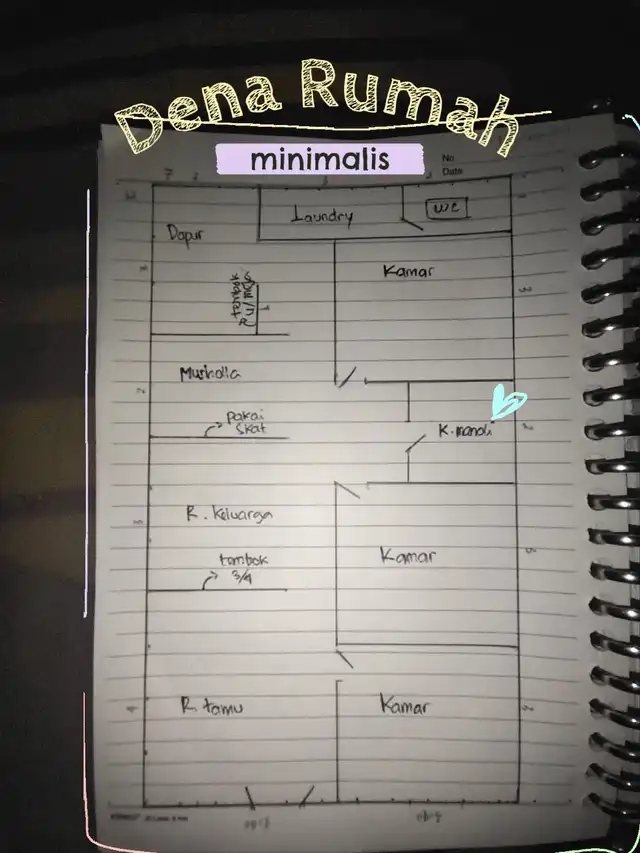 Dena Rumah
minimalis
No
Date
Laundry
WC
Dapur
Kamar
Musholla
pakai
skat
K. mandi
R. Keluarga
tembok
3/4
Kamar
R. tamu
Kamar